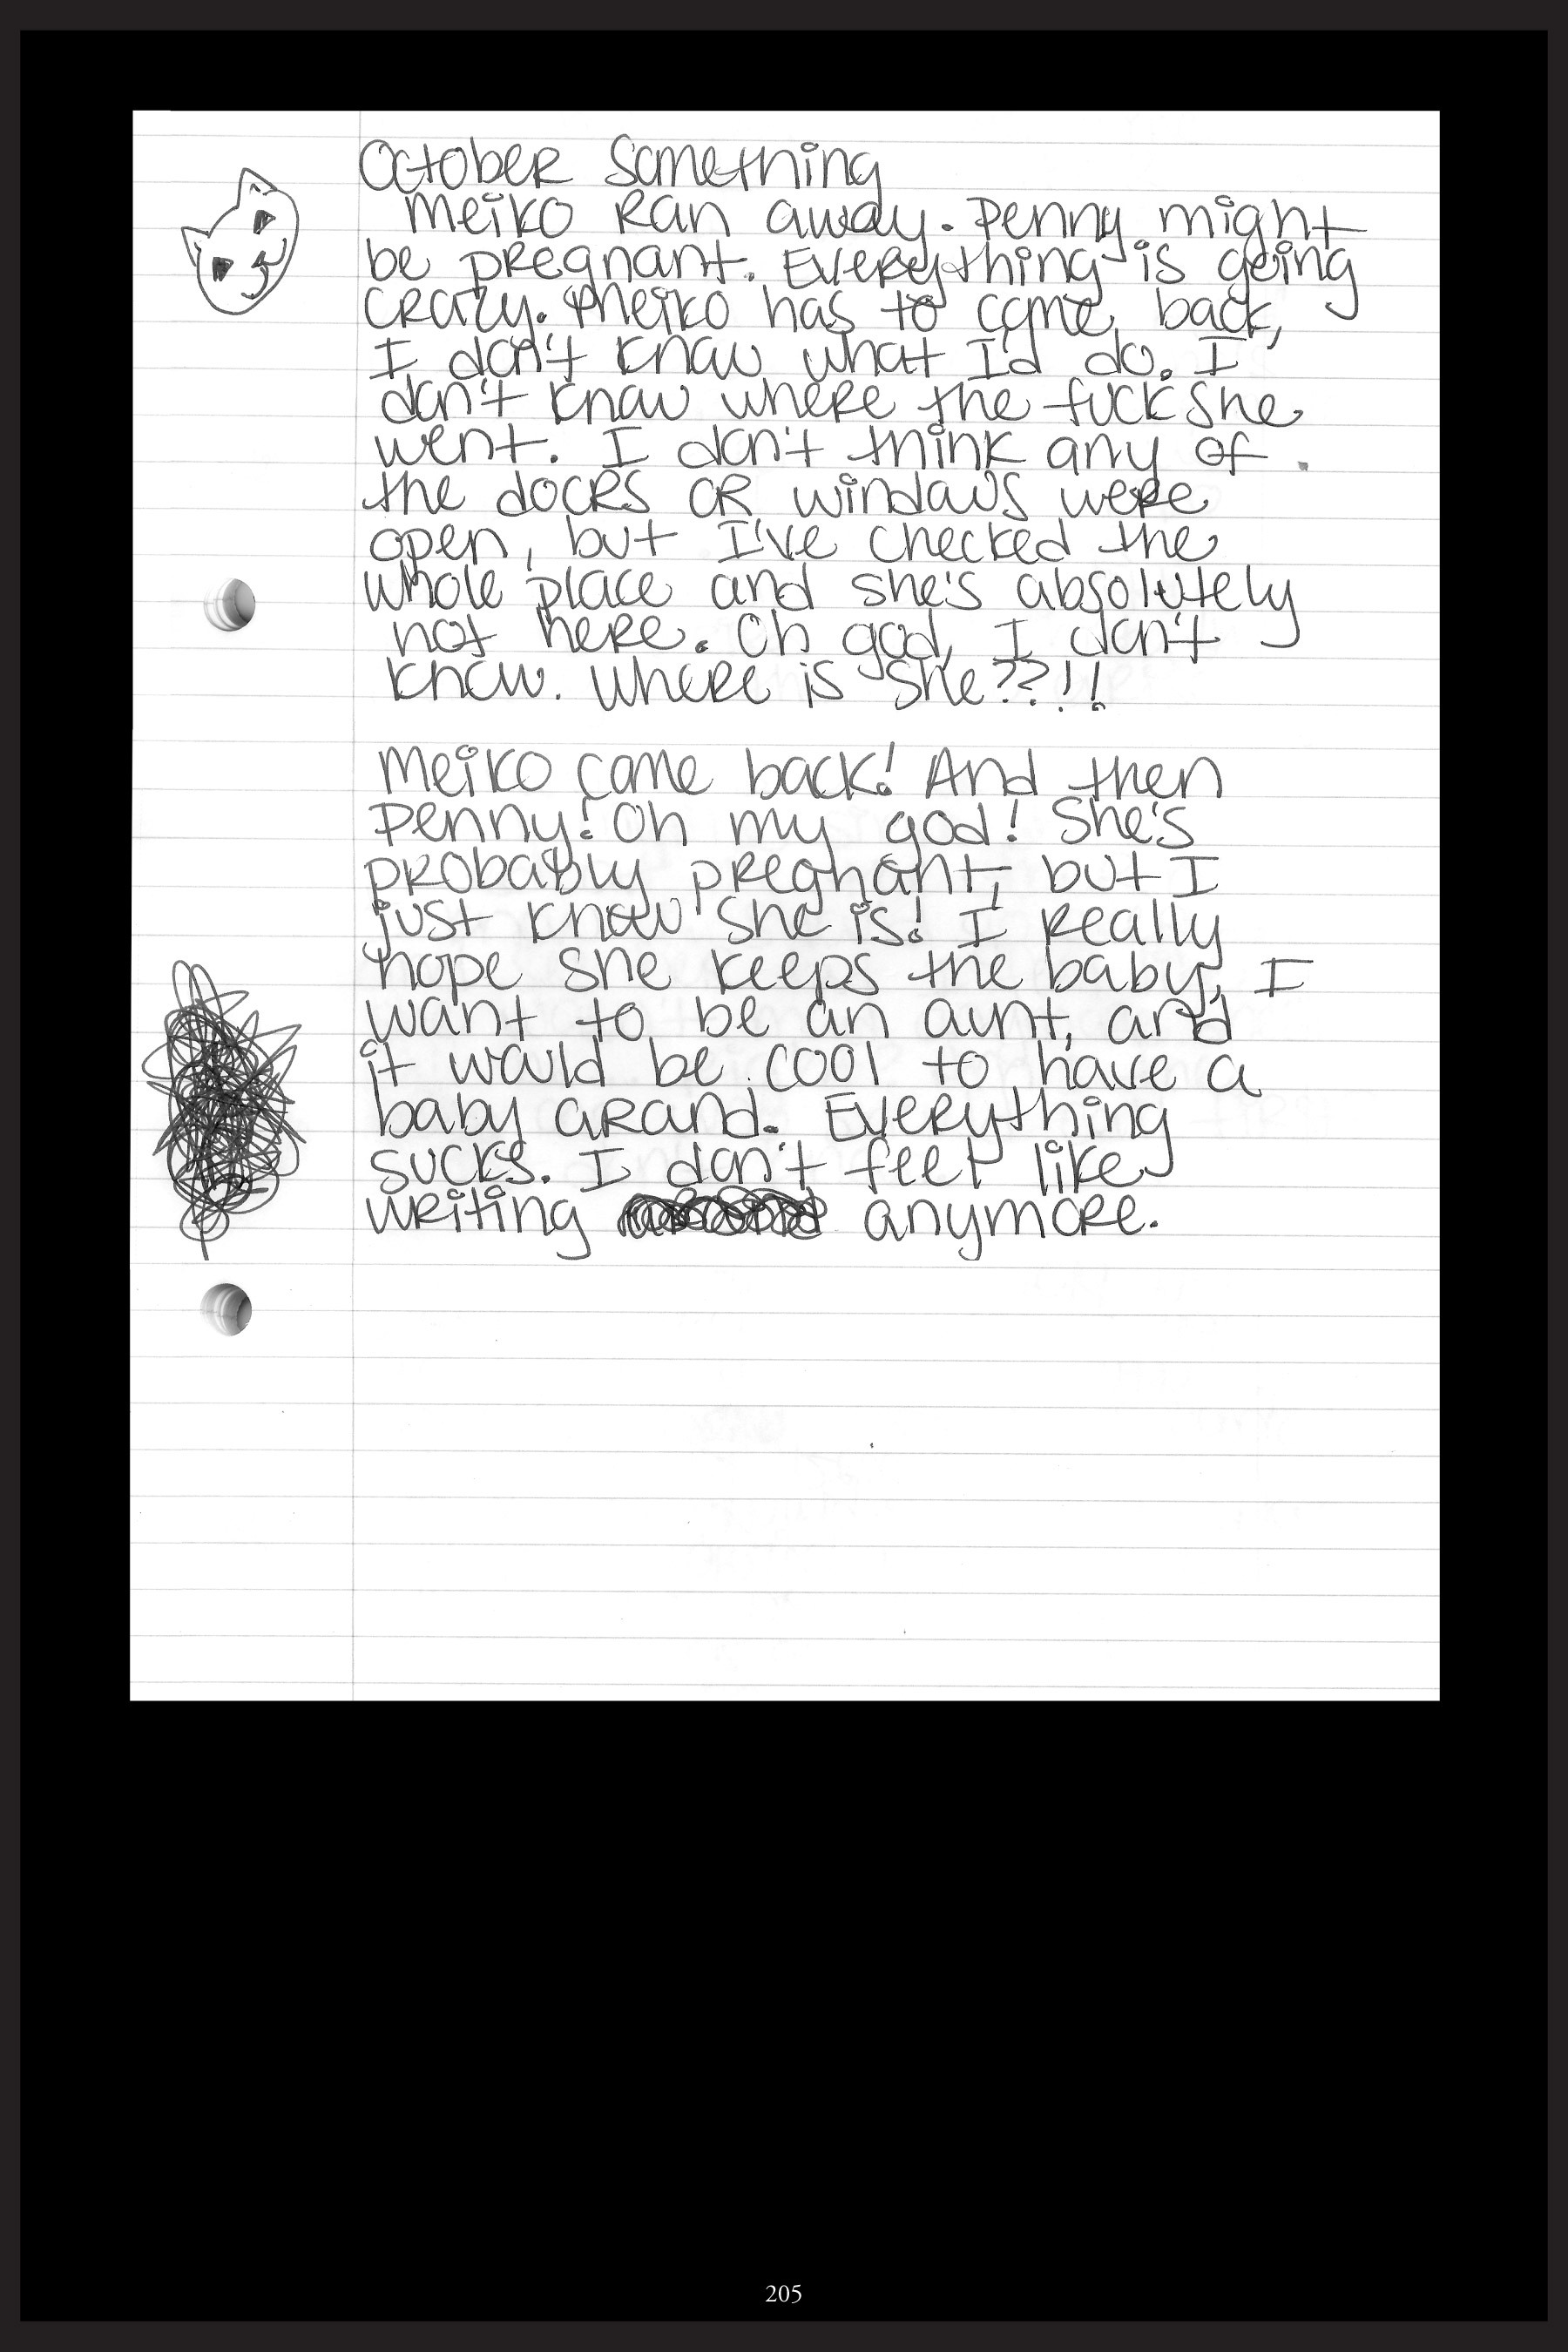 October Something
Meiko ran away. Penny might
be pregnant. Everything is going
crazy. Meiko has to come back,
I don't know what I'd do. I
don't know where the fuck she
went. I don't think any of
the doors or windows were
open, but I've checked the
whole place and she's absolutely
not here. Oh god, I don't
know. Where is she??!!
Meiko came back! And then
Penny! Oh my god! She's
probably pregnant, but I
just know she is! I really
hope she keeps the baby, I
want to be an aunt, and
it would be cool to have a
baby around. Everything
sucks. I don't feel like
writing anymore.
205